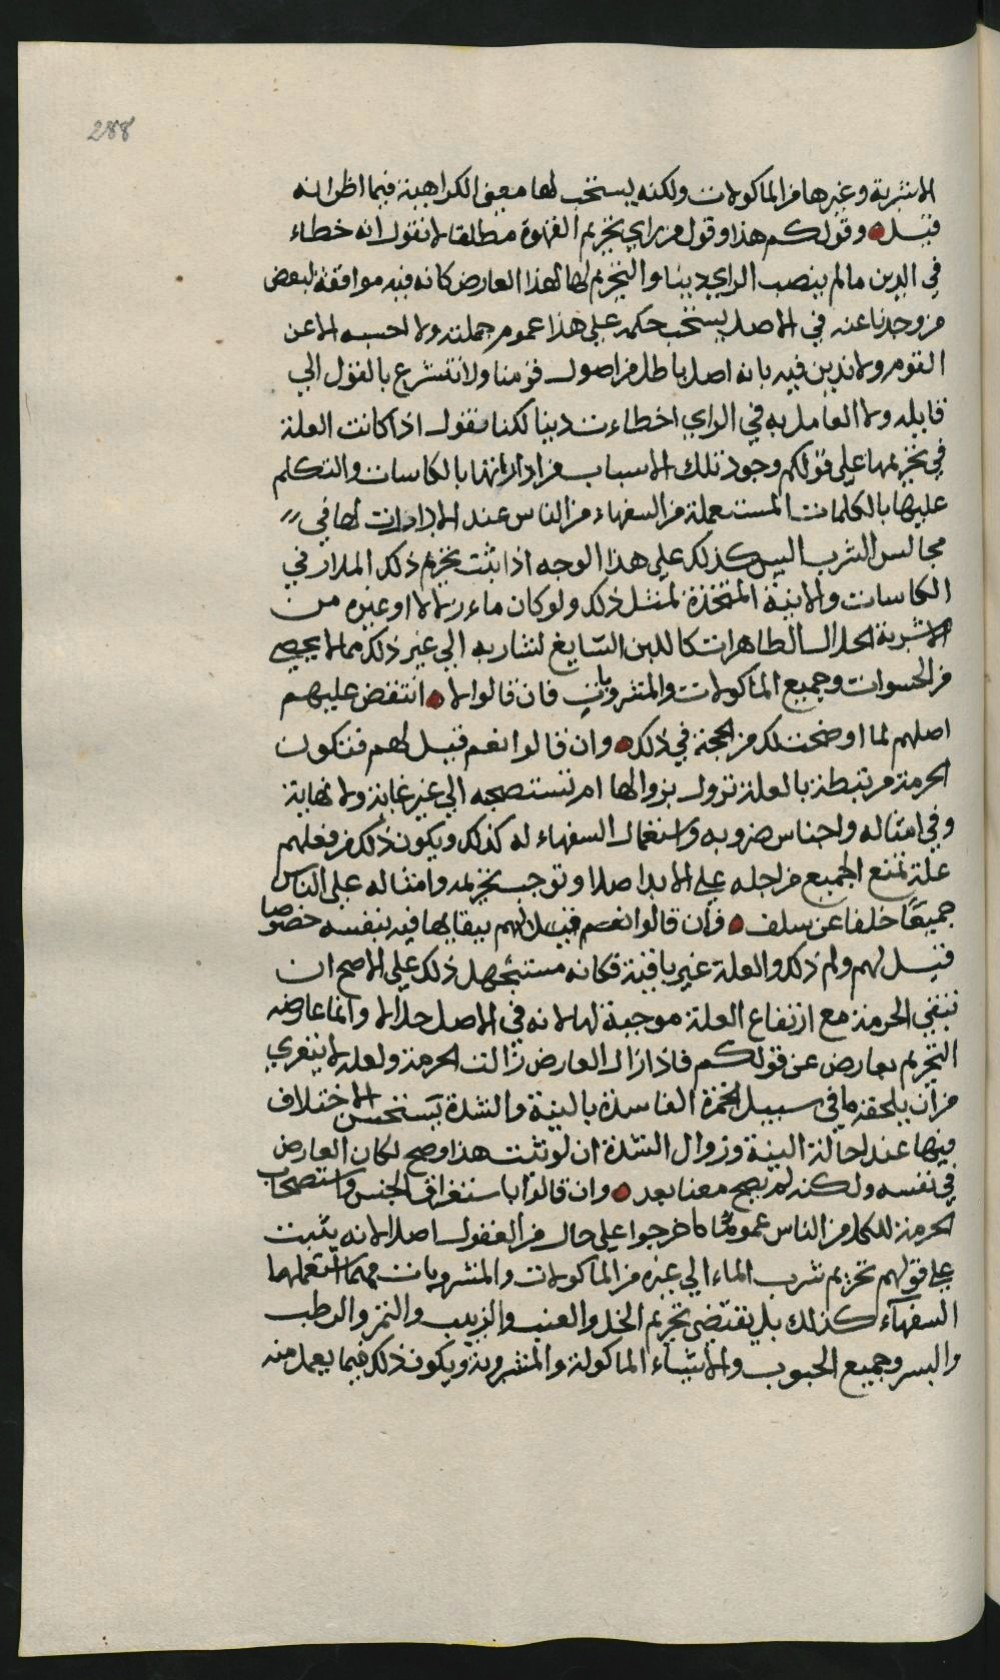 288
الاشربة وغيرها من الماكولات ولكنه يستحب لها معنى الكراهية فيما اظن انه
قيل وقولكم هذا وقول من راي بتحريم القهوة مطلقا لا نقول انه خطاء
في الدين ما لم ينصب الراي دينا والتحريم لها لهذا العارض كانه فيه موافقة لبعض
من وجدنا عنه في الاصل يستحب حكمه على هذا عموم جملته ولا احسبه الا عن
القوم ولا ندين فيه بانه اصل باطل من اصول قومنا ولا نتسرع بالقول الي
قايله ولا العامل به في الراي اخطاءت دينا لكنا نقول اذا كانت العلة
في تحريمها على قولكم وجود تلك الاسباب من ادارتها بالكاسات والتكلم
عليها بالكلمات المستعملة من السفهاء من الناس عند الادارات لها في
مجالس الشرب اليس كذلك على هذا الوجه اذا ثبت تحريم ذلك المدار في
الكاسات والانية المتخذة لمثل ذلك ولو كان ماء زلالا او غيره من
الاشربة الحلال الطاهرات كاللبن السايغ لشاربه الي غير ذلك مما لا يحصى
من الحسوات وجميع الماكولات والمشروبات فان قالوا لا انتقض عليهم
اصلهم لما اوضحت لك من الحجة في ذلك وان قالوا نعم قيل لهم فتكون
الحرمة مرتبطة بالعلة تزول بزوالها ام تستصحبه الي غير غاية ولا نهاية
وفي امثاله واجناس ضروبه واستعمال السفهاء له كذلك ويكون ذلك من فعلهم
علة تمنع الجميع من اجله على الابد اصلا وتوجب تحريمه وامثاله على الناس
جميعا خلفا عن سلف فان قالوا نعم قيل لهم ببقايها فيه بنفسه خصوصا
قيل لهم ولم ذلك والعلة غير باقية فكانه مستجهل ذلك على الاصح ان
تبقي الحرمة مع ارتفاع العلة موجبة لها لانه في الاصل حلالا وانما عارضه
التحريم بعارض عن قولكم فاذا زال العارض زالت الحرمة ولعله لا يتعري
من ان يلحقه ما في سبيل الخمرة الفاسدة بالنية والشدة يستحسن الاختلاف
فيها عند احالة النية وزوال الشدة ان لو ثبت هذا وصح لكان العارض
في نفسه ولكنه لم يصح معنا بعد وان قالوا باستغراق الجنس واستصحاب
الحرمة للكل من الناس عموما خرجوا على حال من العقول اصلا لانه يثبت
على قولهم تحريم شرب الماء الي غيره من الماكولات والمشروبات مهما استعملها
السفهاء كذلك بل يقتضى تحريم الخل والعنب والزبيب والتمر والرطب
والبسر وجميع الحبوب والاشياء الماكولة والمشروبة ويكون ذلك فيما يعمل منه